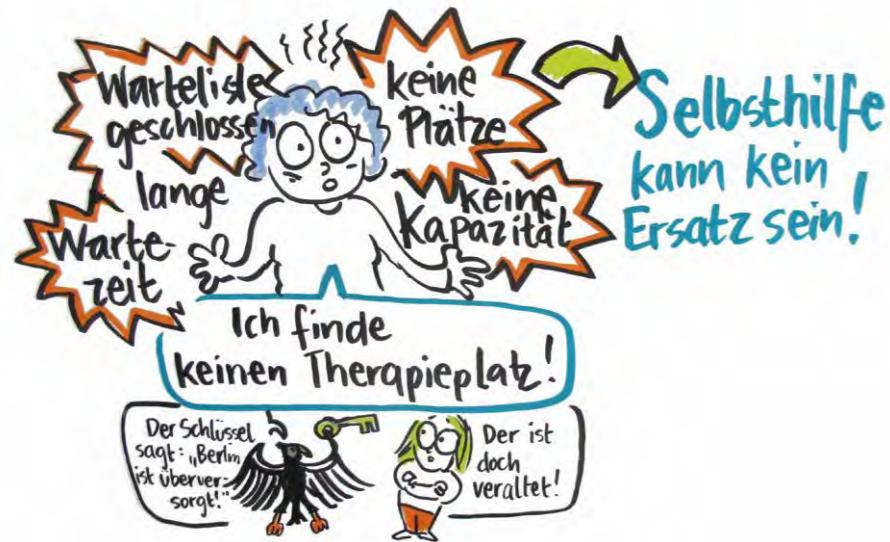 Warteliste
geschlossen
keine
Plätze
lange
Warte-
zeit
keine
Kapazität
Selbsthilfe
kann kein
Ersatz sein!
Ich finde
keinen Therapieplatz!
Der Schlüssel
sagt: „Berlin
ist überver-
sorgt!"
Der ist
doch
veraltet!